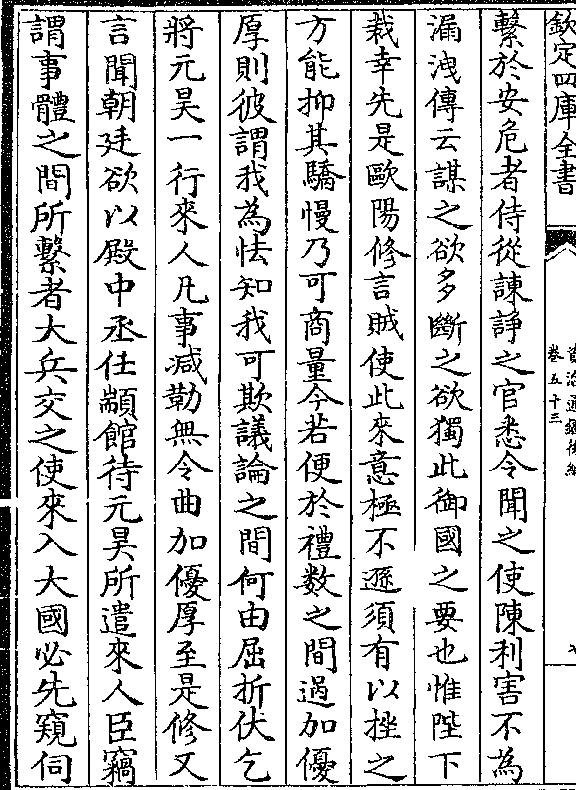 欽定四庫全書
資治通鑑後編
卷五十三
繫於安危者侍從諫諍之官悉令聞之使陳利害不為
漏洩傳云謀之欲多斷之欲獨此御國之要也惟陛下
裁幸先是歐陽修言賊使此來意極不遜須有以挫之
方能抑其驕慢乃可商量今若便於禮数之間過加優
厚則彼謂我為怯知我可欺議論之間何由屈折伏乞
將元昊一行來人凡事減勒無令曲加優厚至是修又
言聞朝廷欲以殿中丞任顓館待元昊所遣來人臣竊
謂事體之間所繫者大兵交之使來入大國必先窺伺